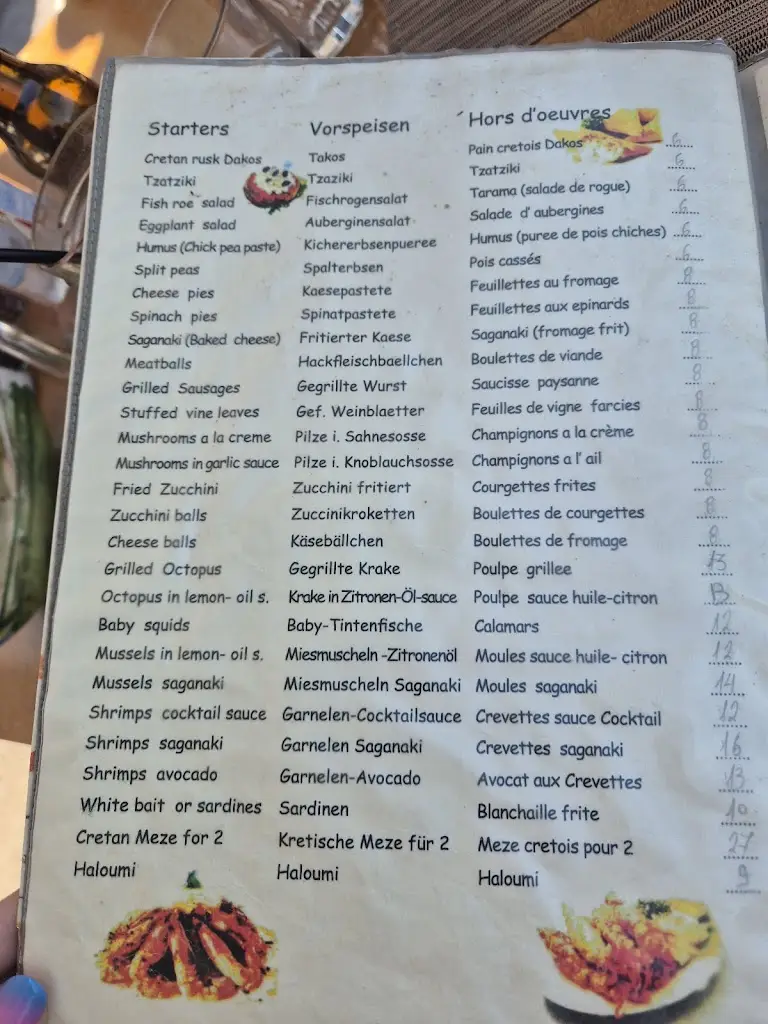 Starters Vorspeisen Hors d'oeuvres
Cretan rusk Dakos Takos Pain cretois Dakos 6
Tzatziki Tzaziki Tzatziki 6
Fish roe salad Fischrogensalat Tarama (salade de rogue) 6
Eggplant salad Auberginensalat Salade d' aubergines 6
Humus (Chick pea paste) Kichererbsenpueree Humus (puree de pois chiches) 6
Split peas Spalterbsen Pois cassés 6
Cheese pies Kaesepastete Feuillettes au fromage 8
Spinach pies Spinatpastete Feuillettes aux epinards 8
Saganaki (Baked cheese) Fritierter Kaese Saganaki (fromage frit) 8
Meatballs Hackfleischbaellchen Boulettes de viande 8
Grilled Sausages Gegrillte Wurst Saucisse paysanne 8
Stuffed vine leaves Gef. Weinblaetter Feuilles de vigne farcies 8
Mushrooms a la creme Pilze i. Sahnesosse Champignons a la crème 8
Mushrooms in garlic sauce Pilze i. Knoblauchsosse Champignons a l' ail 8
Fried Zucchini Zucchini fritiert Courgettes frites 8
Zucchini balls Zuccinikroketten Boulettes de courgettes 8
Cheese balls Käsebällchen Boulettes de fromage 8
Grilled Octopus Gegrillte Krake Poulpe grillee 13
Octopus in lemon- oil s. Krake in Zitronen-Öl-sauce Poulpe sauce huile-citron 13
Baby squids Baby-Tintenfische Calamars 12
Mussels in lemon- oil s. Miesmuscheln -Zitronenöl Moules sauce huile- citron 12
Mussels saganaki Miesmuscheln Saganaki Moules saganaki 14
Shrimps cocktail sauce Garnelen-Cocktailsauce Crevettes sauce Cocktail 12
Shrimps saganaki Garnelen Saganaki Crevettes saganaki 16
Shrimps avocado Garnelen-Avocado Avocat aux Crevettes 13
White bait or sardines Sardinen Blanchaille frite 10
Cretan Meze for 2 Kretische Meze für 2 Meze cretois pour 2 27
Haloumi Haloumi Haloumi 9